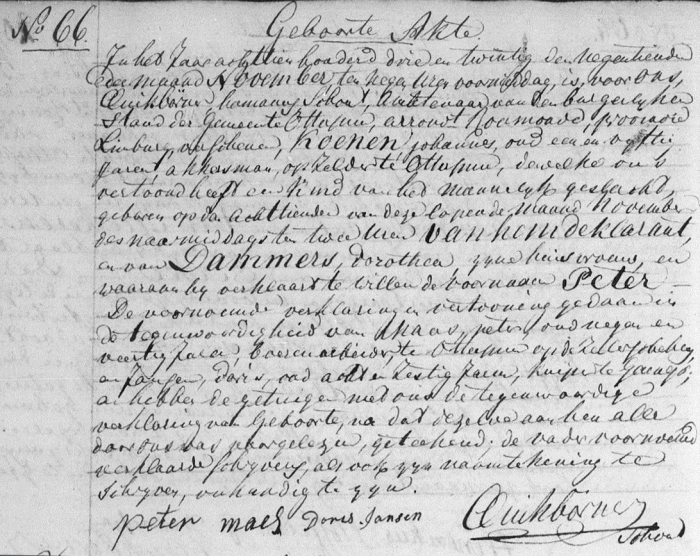 No 66.
Geboorte Akte.
In het Jaar achttien honderd drie en twintig den negentienden
der maand November ten negen uren voormiddag, is, voor ons,
Quichbörner, Schout, Amtenaar van den burgerlyken
Stand der Gemeente Ottersum, arrondt Roermonde, provincie
Limburg, verschenen, Koenen, johannes, oud een en
jaren akkerman, op te Ottersum, dewelke ons
vertoond heeft een kind van het mannelyk geslacht,
geboren op den achttienden van deze lopende maand November
des naarmiddags ten twee uren van hem deklarant,
en van Dammers, dorothea zyne huisvrouw, en
waaraan hy verklaart te willen de voornaam Peter —
De voornoemde verklaring en vertooning gedaan in
de tegenwoordigheid van Maas, peter, oud negen en
veertig Jaren, te Ottersum op de
en Jansen, doris, oud acht en zestig Jaren, kuiper te
en hebben de getuigen met ons de tegenwoordige
verklaring van Geboorte, na dat dezelve aan hen alle
door ons was voorgelezen, geteekend; de vader voornoemd
verklaarde schryvens, als ook zyn naamtekening te
schryven, onkundig te zyn.
peter maes Doris Jansen Quichbörner
Schout